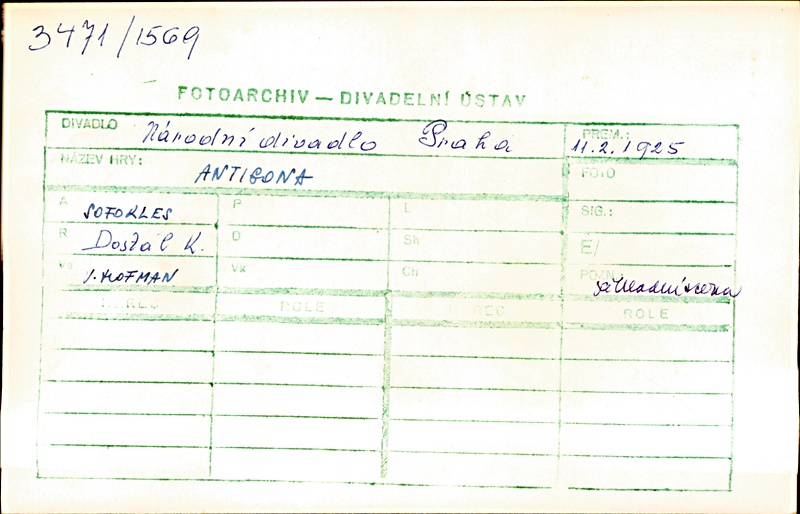 3471/1569
FOTOARCHIV — DIVADELNÍ ÚSTAV
DIVADLO Národní divadlo Praha PREM.: 11.2.1925
NÁZEV HRY: ANTIGONA FOTO
A SOFOKLES P L SIG.:
R Dostál K. D Sh E/
V. HOFMAN Vx Ch POZN.
HEREC ROLE HEREC ROLE